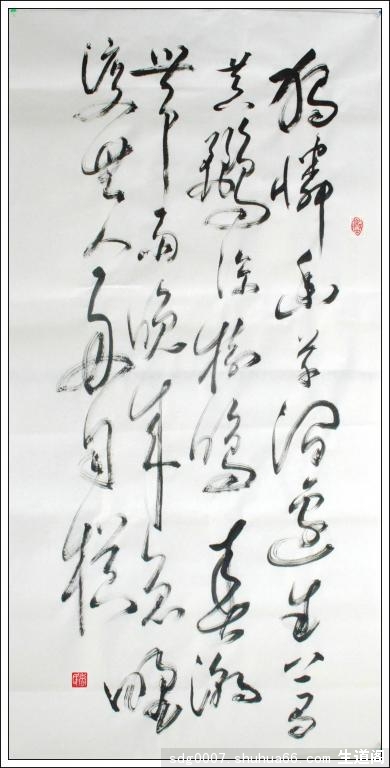 獨憐幽草澗邊生上有
黃鸝深樹鳴春潮
帶雨晚來急野
渡無人舟自橫
sdg0007 .shuhua66 .com 生道阁